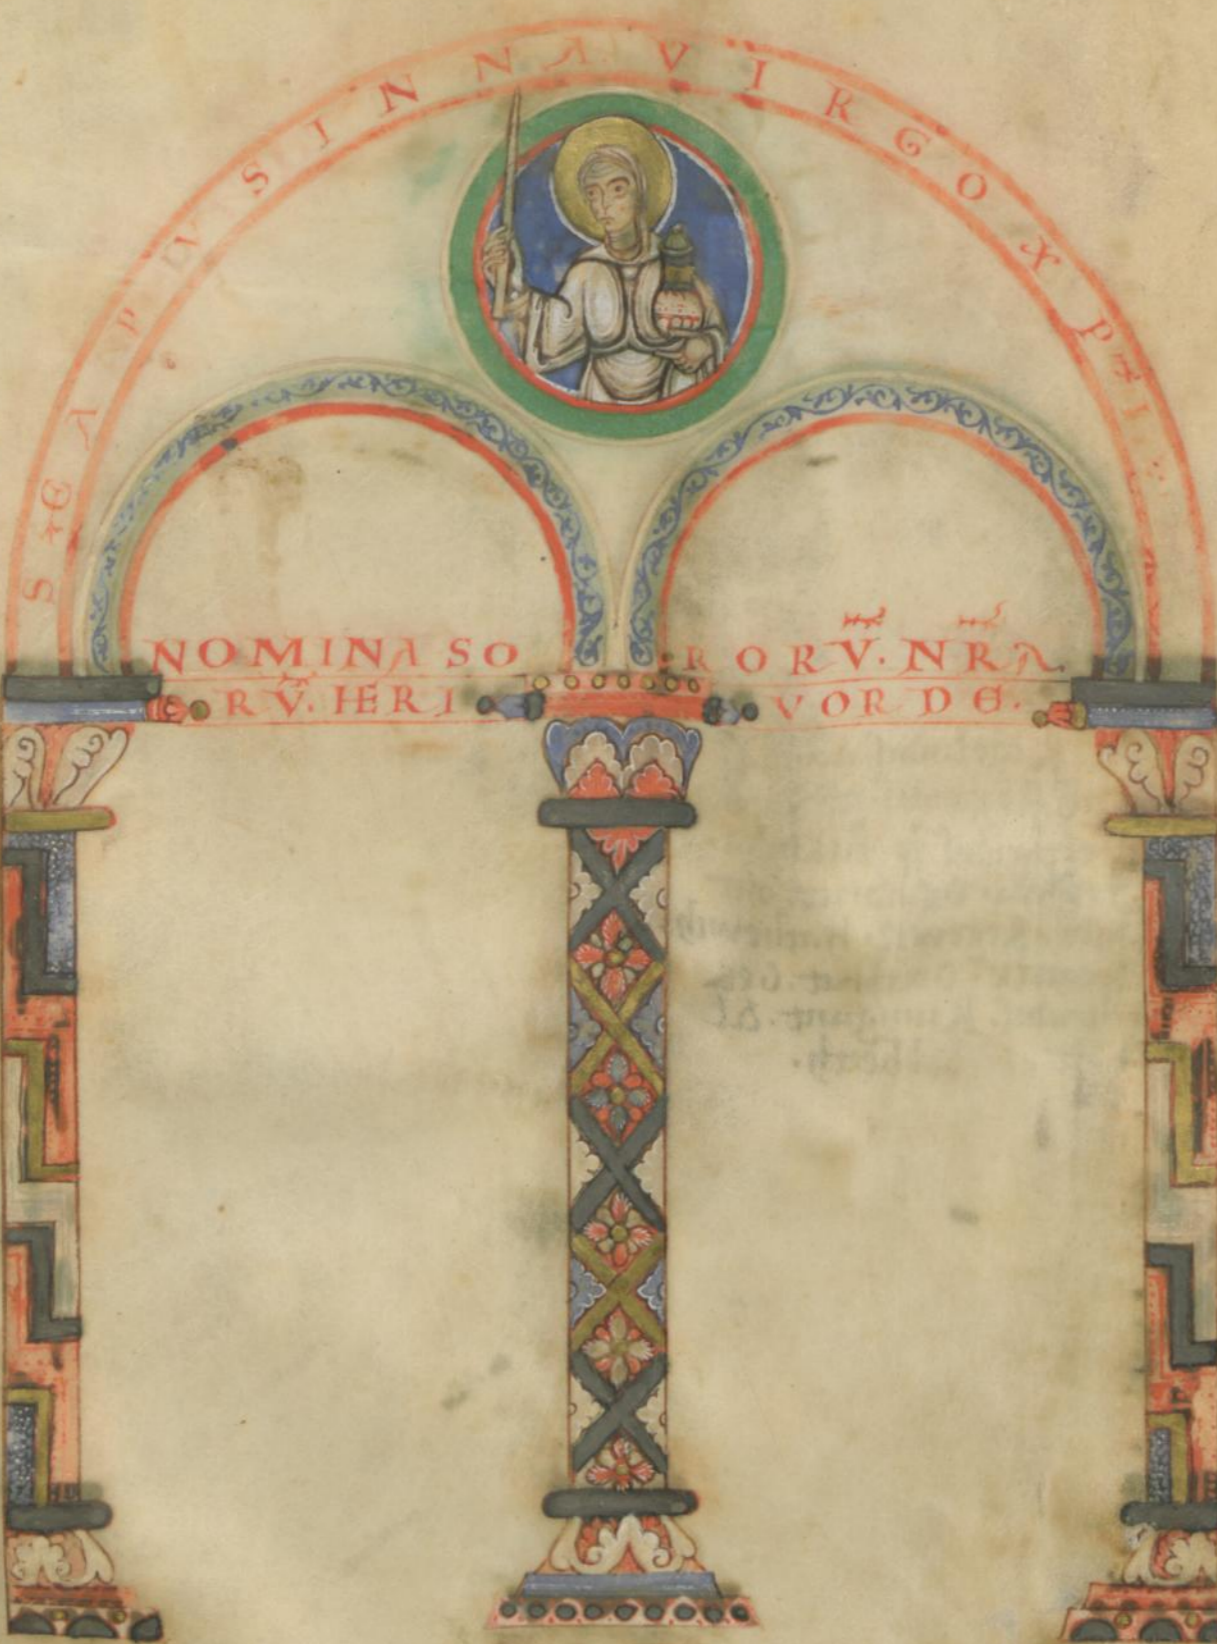 S̄C̄A PVSINNA VIRGO XPI
NOMINA SORORV̄. NR̄A
RV̄. HERIVORDE.